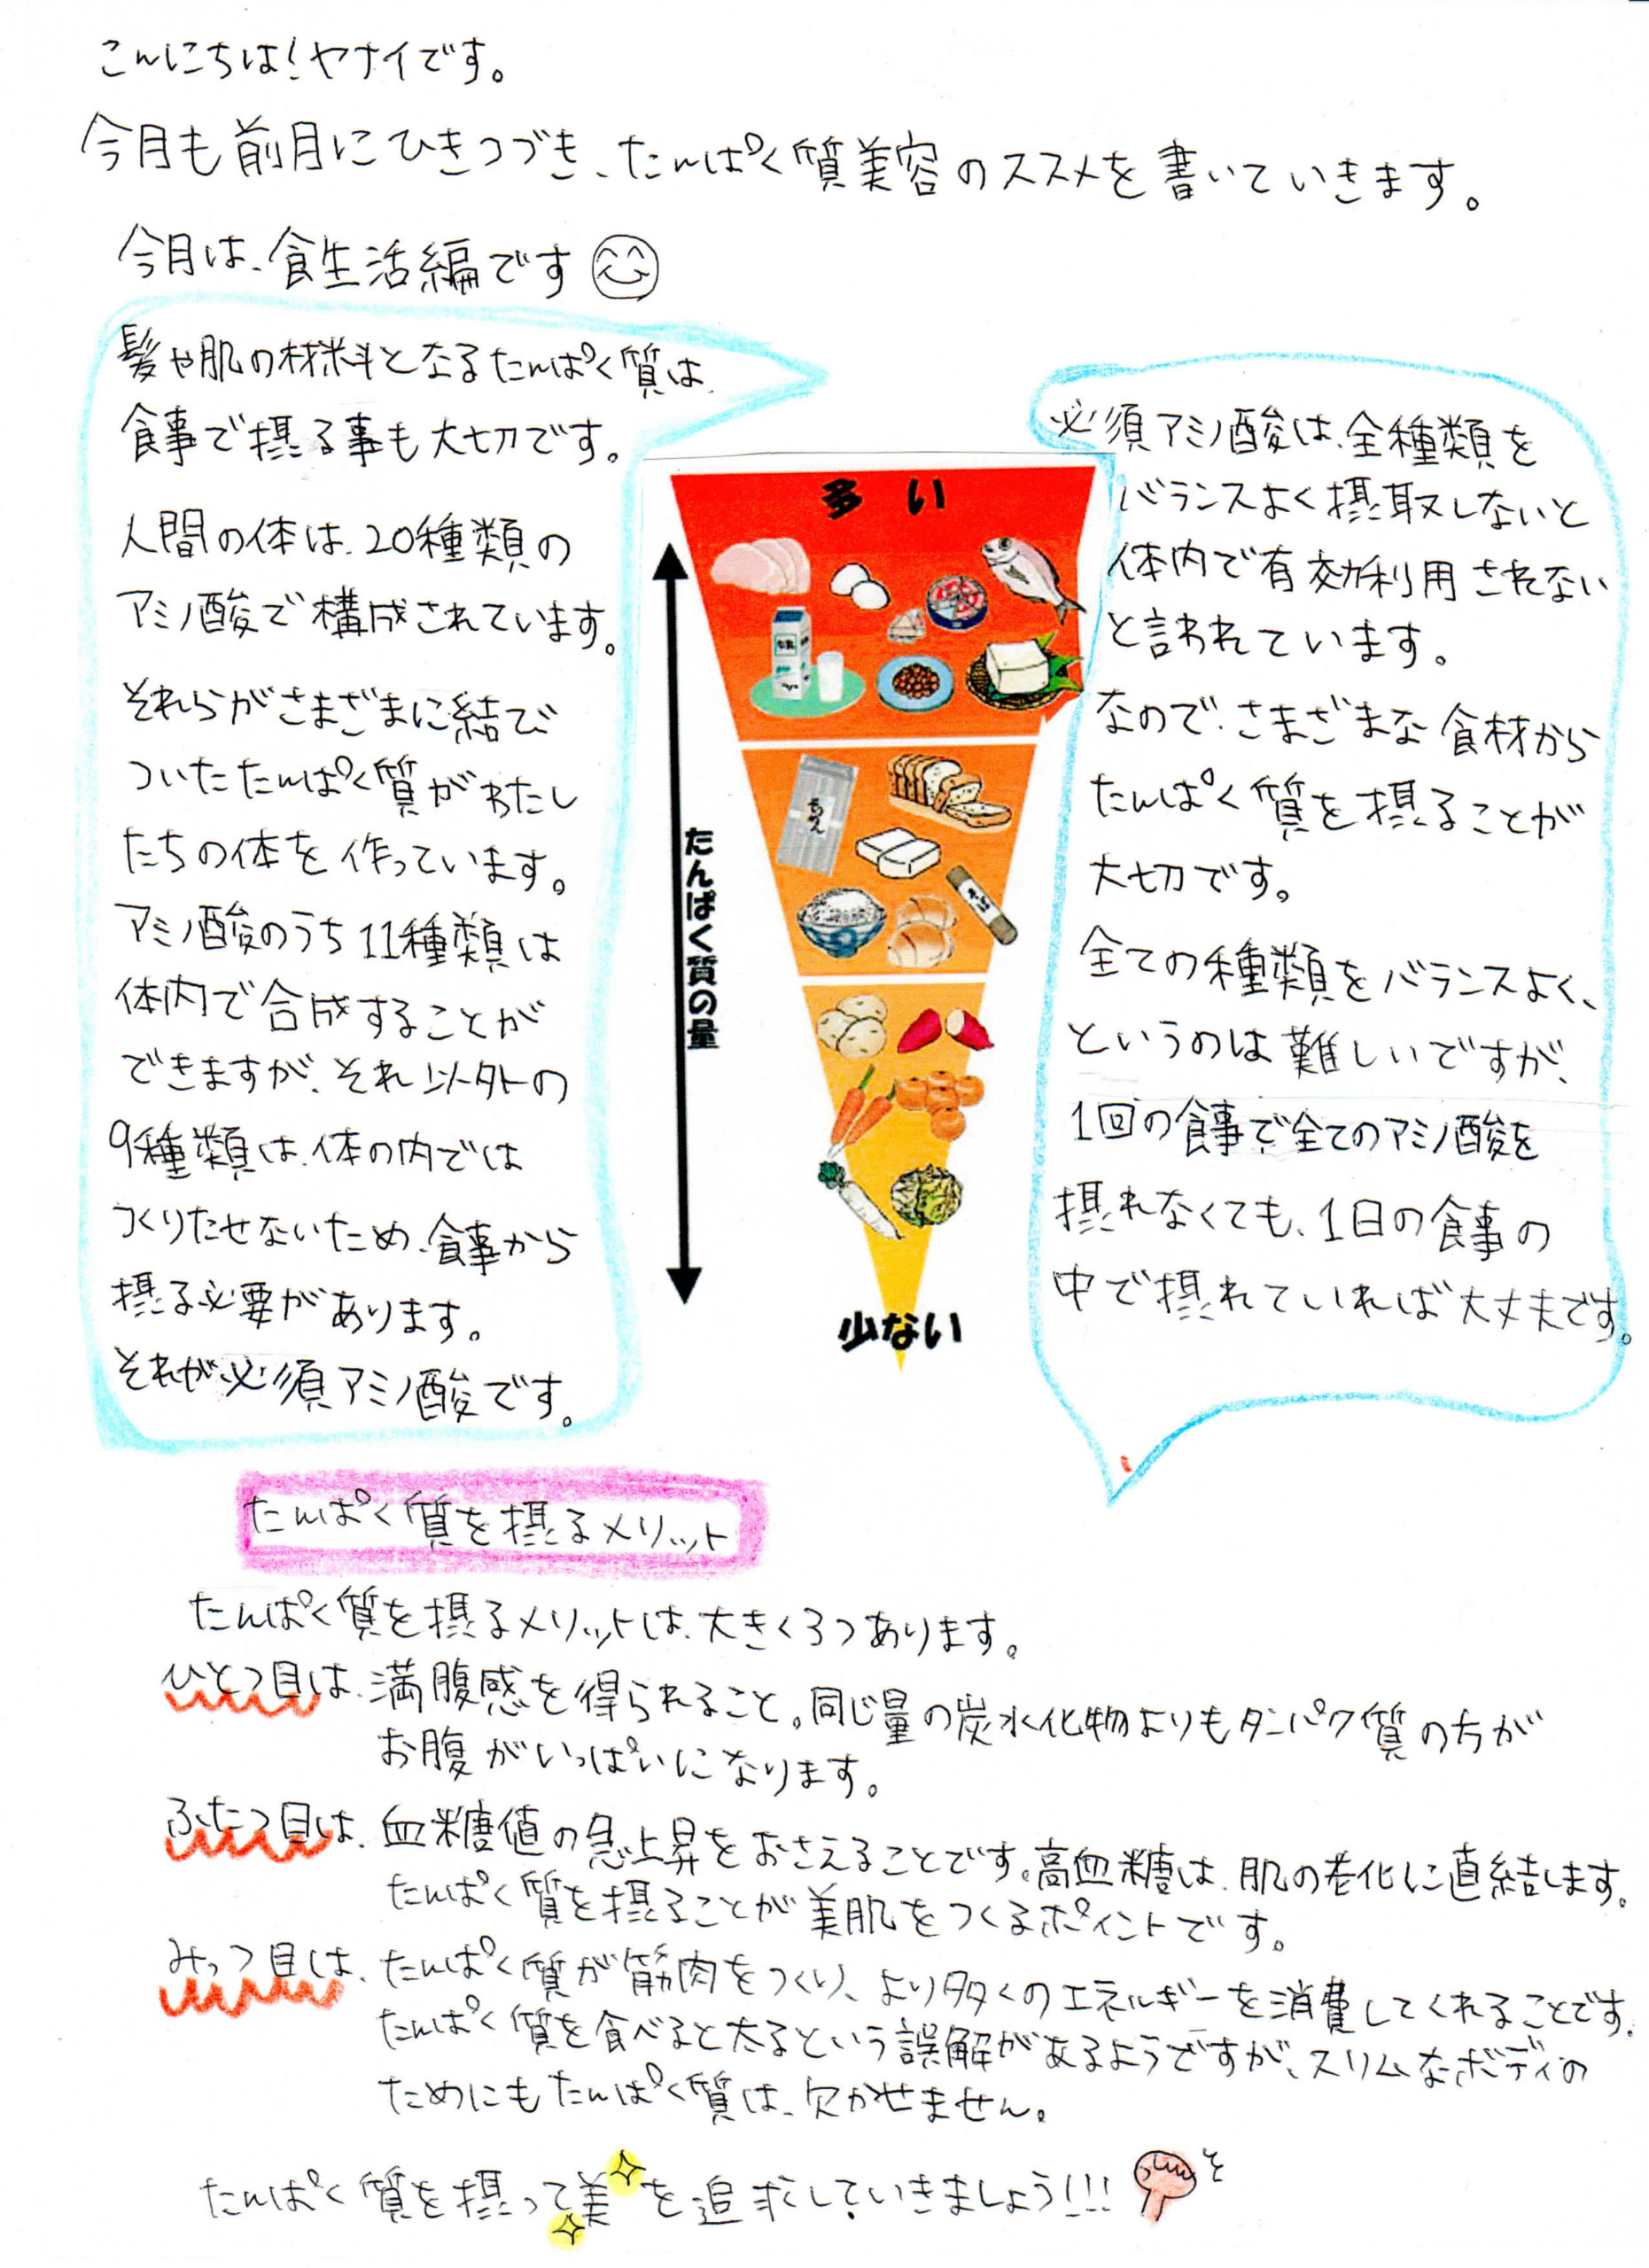 こんにちは!ヤナイです。
今月も前月にひきつづき、たんぱく質美容のススメを書いていきます。
今月は、食生活編です
髪や肌の材料となるたんぱく質は、
食事で摂る事も大切です。
人間の体は、20種類の
アミノ酸で構成されています。
それらがさまざまに結び
ついたたんぱく質がわたし
たちの体を作っています。
アミノ酸のうち11種類は
体内で合成することが
できますが、それ以外の
9種類は、体の内では
つくりだせないため、食事から
摂る必要があります。
それが必須アミノ酸です。
多い
たんぱく質の量
少ない
必須アミノ酸は、全種類を
バランスよく摂取しないと
体内で有効利用されない
と言われています。
なので、さまざまな食材から
たんぱく質を摂ることが
大切です。
全ての種類をバランスよく、
というのは難しいですが、
1回の食事で全てのアミノ酸を
摂れなくても、1日の食事の
中で摂れていれば大丈夫です。
たんぱく質を摂るメリット
たんぱく質を摂るメリットは、大きく3つあります。
ひとつ目は、満腹感を得られること。同じ量の炭水化物よりもタンパク質の方が
お腹がいっぱいになります。
ふたつ目は、血糖値の急上昇をおさえることです。高血糖は、肌の老化に直結します。
たんぱく質を摂ることが美肌をつくるポイントです。
みっつ目は、たんぱく質が筋肉をつくり、より多くのエネルギーを消費してくれることです。
たんぱく質を食べると太るという誤解があるようですが、スリムなボディの
ためにもたんぱく質は、欠かせません。
たんぱく質を摂って美を追求していきましょう!!!